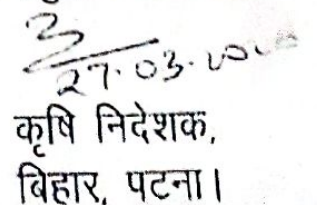 3
27.03.20
कृषि निदेशक,
बिहार, पटना।